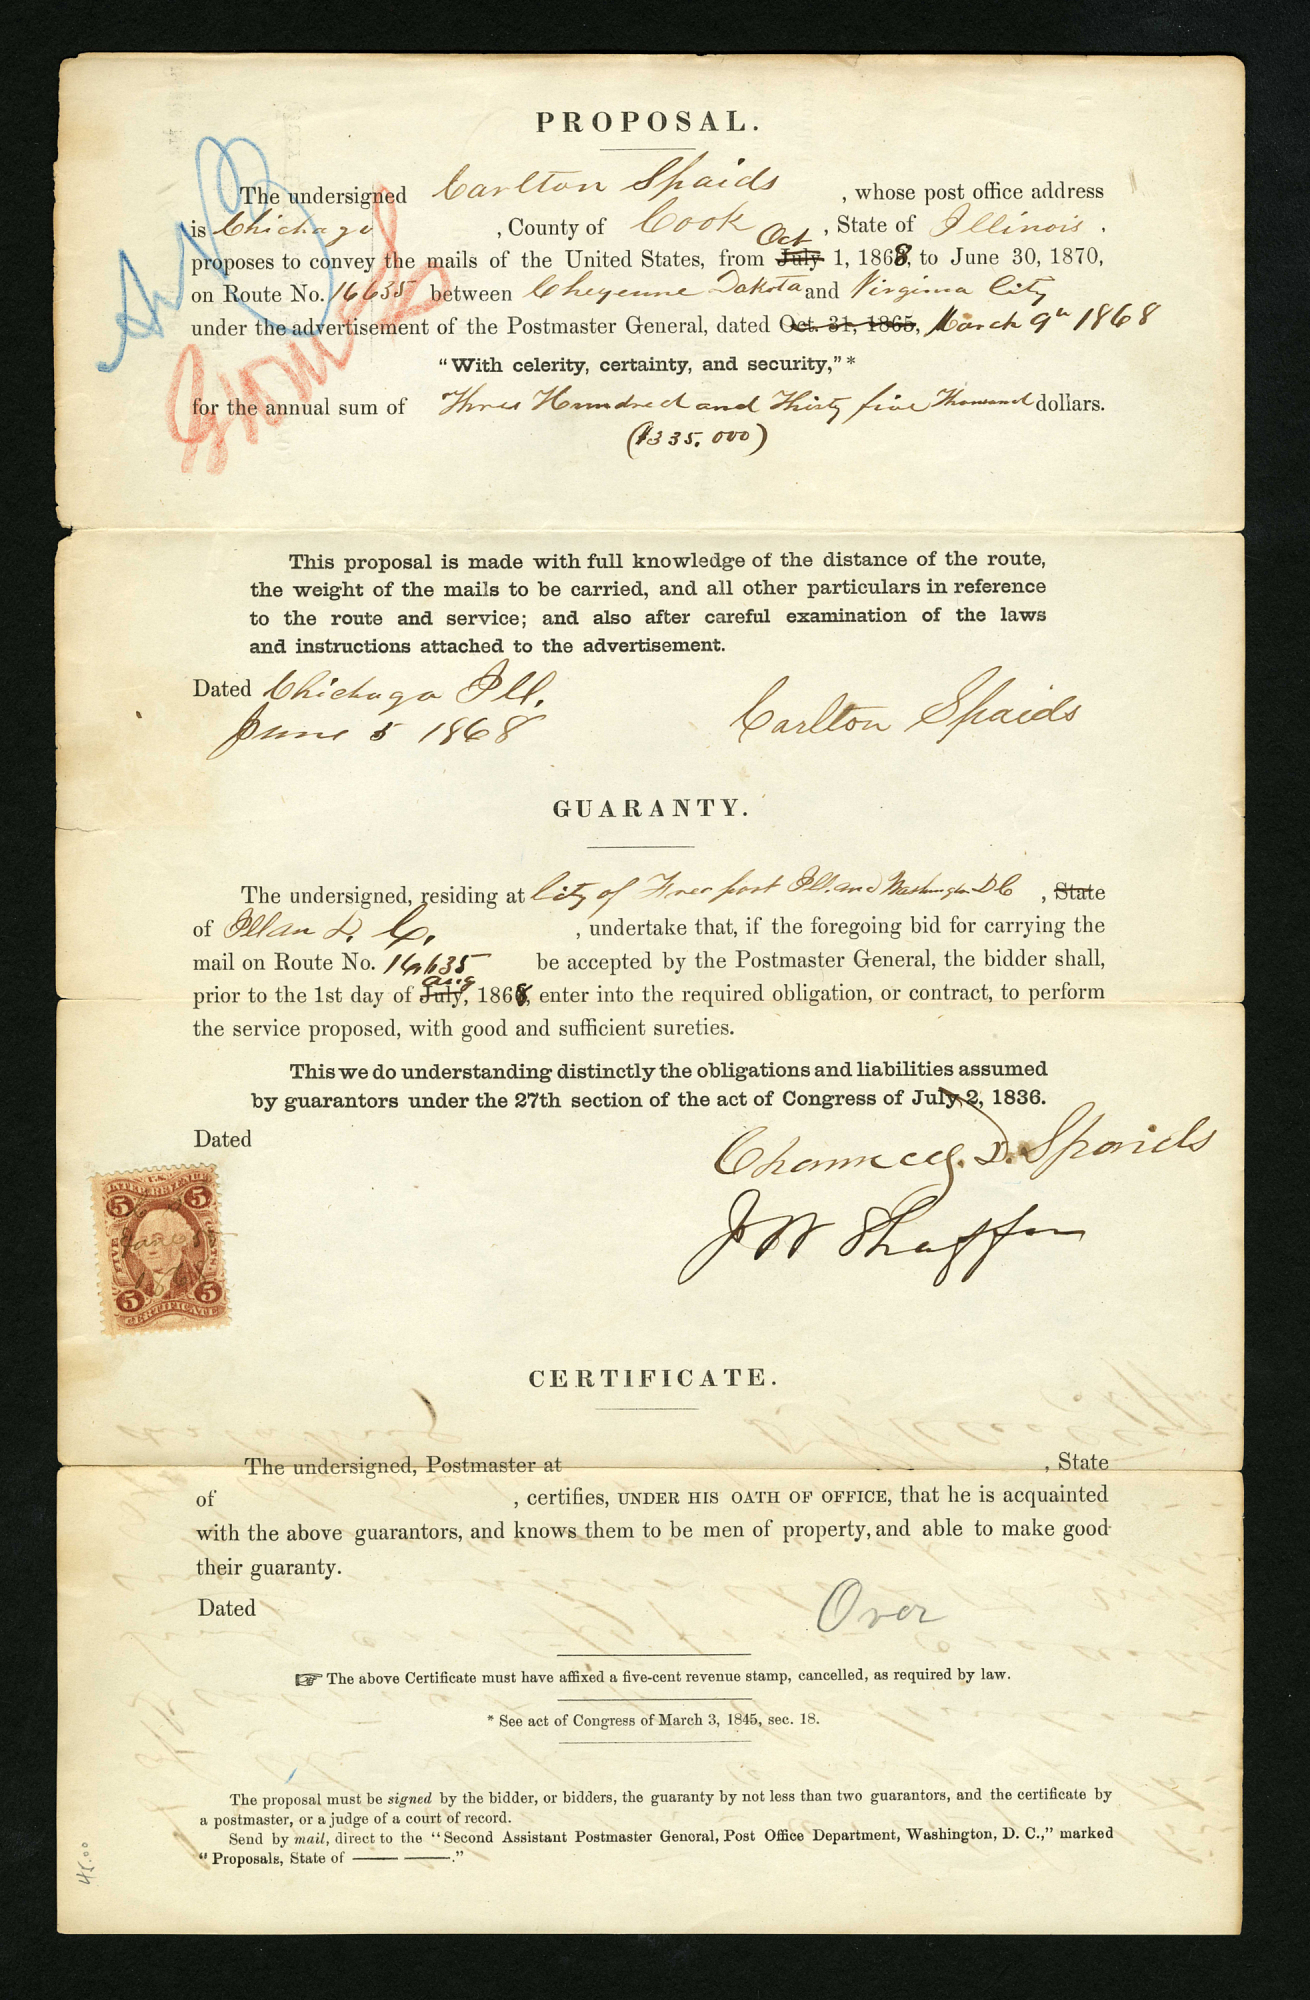 PROPOSAL.
The undersigned Carlton Spaids, whose post office address
is Chichago, County of Cook, State of Illinois.
Oct
proposes to convey the mails of the United States, from July 1, 1868, to June 30, 1870,
on Route No. 16635 between Cheyenne Dakota and Virginia City
under the advertisement of the Postmaster General, dated Oct. 31, 1865, March 9th 1868
"With celerity, certainty, and security,"*
for the annual sum of Three Hundred and Thirty five Thousand dollars.
($335.000)
This proposal is made with full knowledge of the distance of the route,
the weight of the mails to be carried, and all other particulars in reference
to the route and service; and also after careful examination of the laws
and instructions attached to the advertisement.
Dated Chichago Ill.
June 5 1868
Carlton Spaids
GUARANTY.
The undersigned, residing at City of Freeport Ill. and Washington DC, State
of Ill an D. C., undertake that, if the foregoing bid for carrying the
mail on Route No. 16635 be accepted by the Postmaster General, the bidder shall,
aug
prior to the 1st day of July, 1868, enter into the required obligation, or contract, to perform
the service proposed, with good and sufficient sureties.
This we do understanding distinctly the obligations and liabilities assumed
by guarantors under the 27th section of the act of Congress of July 2, 1836.
Dated
Chauncey. D. Spaids
J W Shaffer
U.S.
INTER. REVENUE
5 5
FIVE CENTS
5 5
CERTIFICATE
CERTIFICATE.
The undersigned, Postmaster at , State
of , certifies, UNDER HIS OATH OF OFFICE, that he is acquainted
with the above guarantors, and knows them to be men of property, and able to make good
their guaranty.
Dated
Over
☞ The above Certificate must have affixed a five-cent revenue stamp, cancelled, as required by law.
* See act of Congress of March 3, 1845, sec. 18.
The proposal must be signed by the bidder, or bidders, the guaranty by not less than two guarantors, and the certificate by
a postmaster, or a judge of a court of record.
Send by mail, direct to the "Second Assistant Postmaster General, Post Office Department, Washington, D. C.," marked
"Proposals, State of —— ——."